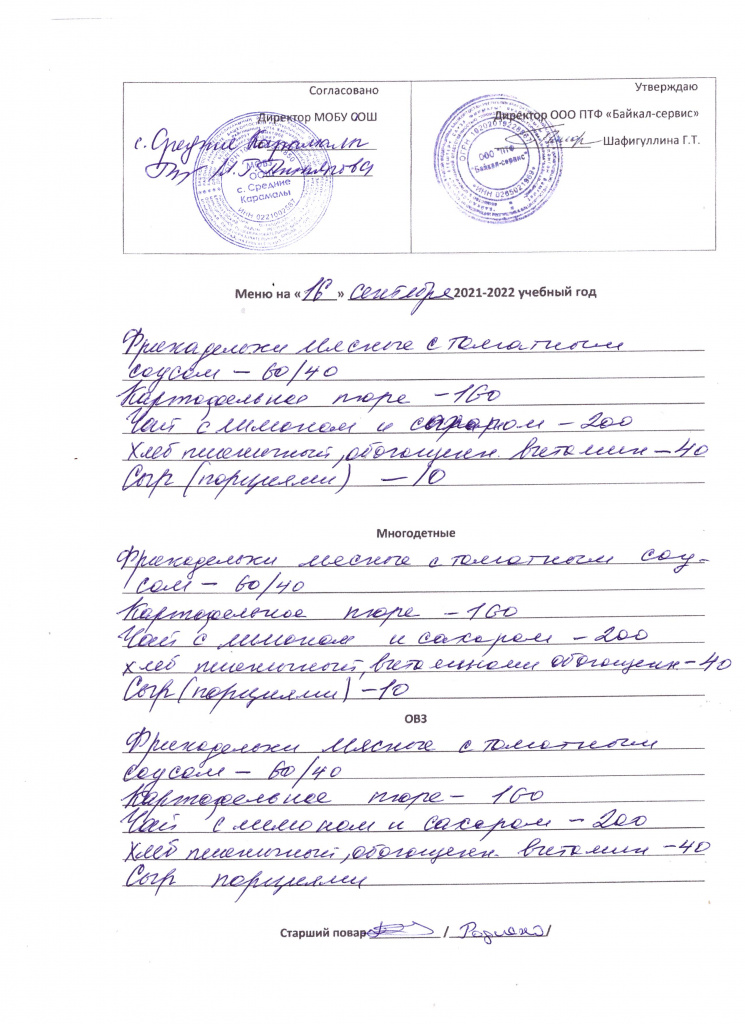 Согласовано
Директор МОБУ ООШ
с. Средние Карамалы
Утверждаю
Директор ООО ПТФ «Байкал-сервис»
Шафигуллина Г.Т.
МОБУ
ООШ
с. Средние
Карамалы
ООО "ПТФ
"Байкал-сервис"
Меню на «16» сентября 2021-2022 учебный год
Фрикадельки мясные с томатным
соусом – 60/40
Картофельное пюре – 160
Чай с лимоном и сахаром – 200
Хлеб пшеничный, обогощенн. витамин – 40
Сыр (порциями) – 10
Многодетные
Фрикадельки мясные с томатным соу-
сом – 60/40
Картофельное пюре – 160
Чай с лимоном и сахаром – 200
хлеб пшеничный, витаминами обогощенн – 40
Сыр (порциями) – 10
ОВЗ
Фрикадельки мясные с томатным
соусом – 60/40
Картофельное пюре – 160
Чай с лимоном и сахаром – 200
Хлеб пшеничный, обогощенн. витамин – 40
Сыр порциями
Старший повар / /